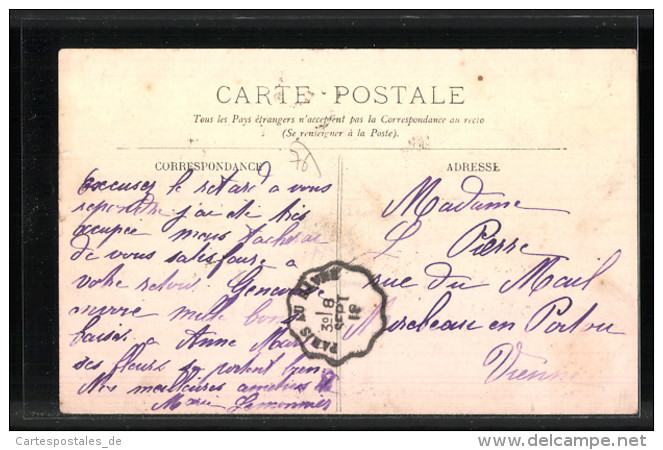 CARTE POSTALE
Tous les Pays étrangers n'acceptent pas la Correspondance au recto
(Se renseigner à la Poste).
CORRESPONDANCE
ADRESSE
Excusez le retard a vous
repondre j'ai été très
ocupée mais tacherai
de vous satisfaire a
votre retour. Geneviève
envoie mille bons
baisers a Anne Marie
ses fleurs se portent bien
Nos meilleures amitiés
Marie Lemonnier
Madame
L Pierre
rue du Mail
Mirebeau en Poitou
Vienne
PARIS AU HAVRE
3° 8
SEPT
Cartespostales_de
delcampe.net